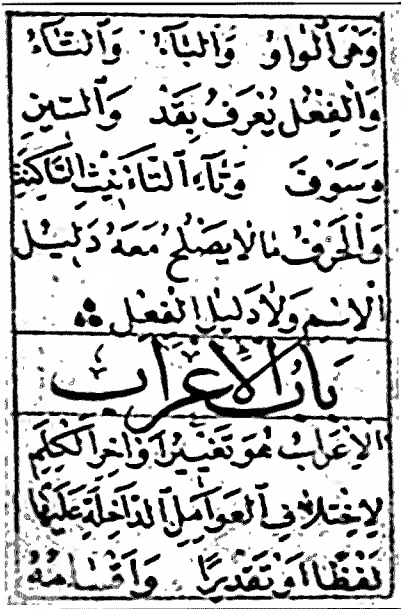 وَهِيَ الْوَاوُ وَالْبَآءُ وَالتَّآءُ
وَالْفِعْلُ يُعْرَفُ بِقَدْ وَالسِّيْنِ
وَسَوْفَ وَتَآءِ التَّأْنِيْثِ السَّاكِنَةِ
وَالْحَرْفُ مَا لَا يَصْلُحُ مَعَهُ دَلِيْلُ
الْاِسْمِ وَلَا دَلِيْلُ الْفِعْلِ
بَابُ الْاِعْرَابِ
الْاِعْرَابُ هُوَ تَغْيِيْرُ اَوَاخِرِ الْكَلِمِ
لِاِخْتِلَافِ الْعَوَامِلِ الدَّاخِلَةِ عَلَيْهَا
لَفْظًا اَوْ تَقْدِيْرًا وَاَقْسَامُهُ